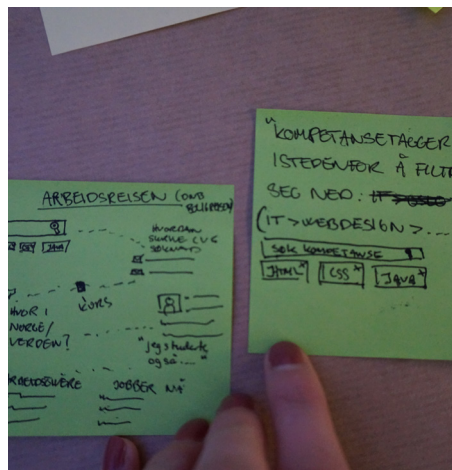 ARBEIDSREISEN (OMB
HVORDAN
SKRIVE CV &
SØKNAD
JAVA
KURS
HVOR I
NORGE/
VERDEN?
"jeg studerte
også ..."
JOBBER NÅ
"KOMPETANSETAGGER
ISTEDENFOR Å FILTR
SEG NED:
(IT>WEBDESIGN>...
SØK KOMPETANSE
HTML x CSS x JAVA x